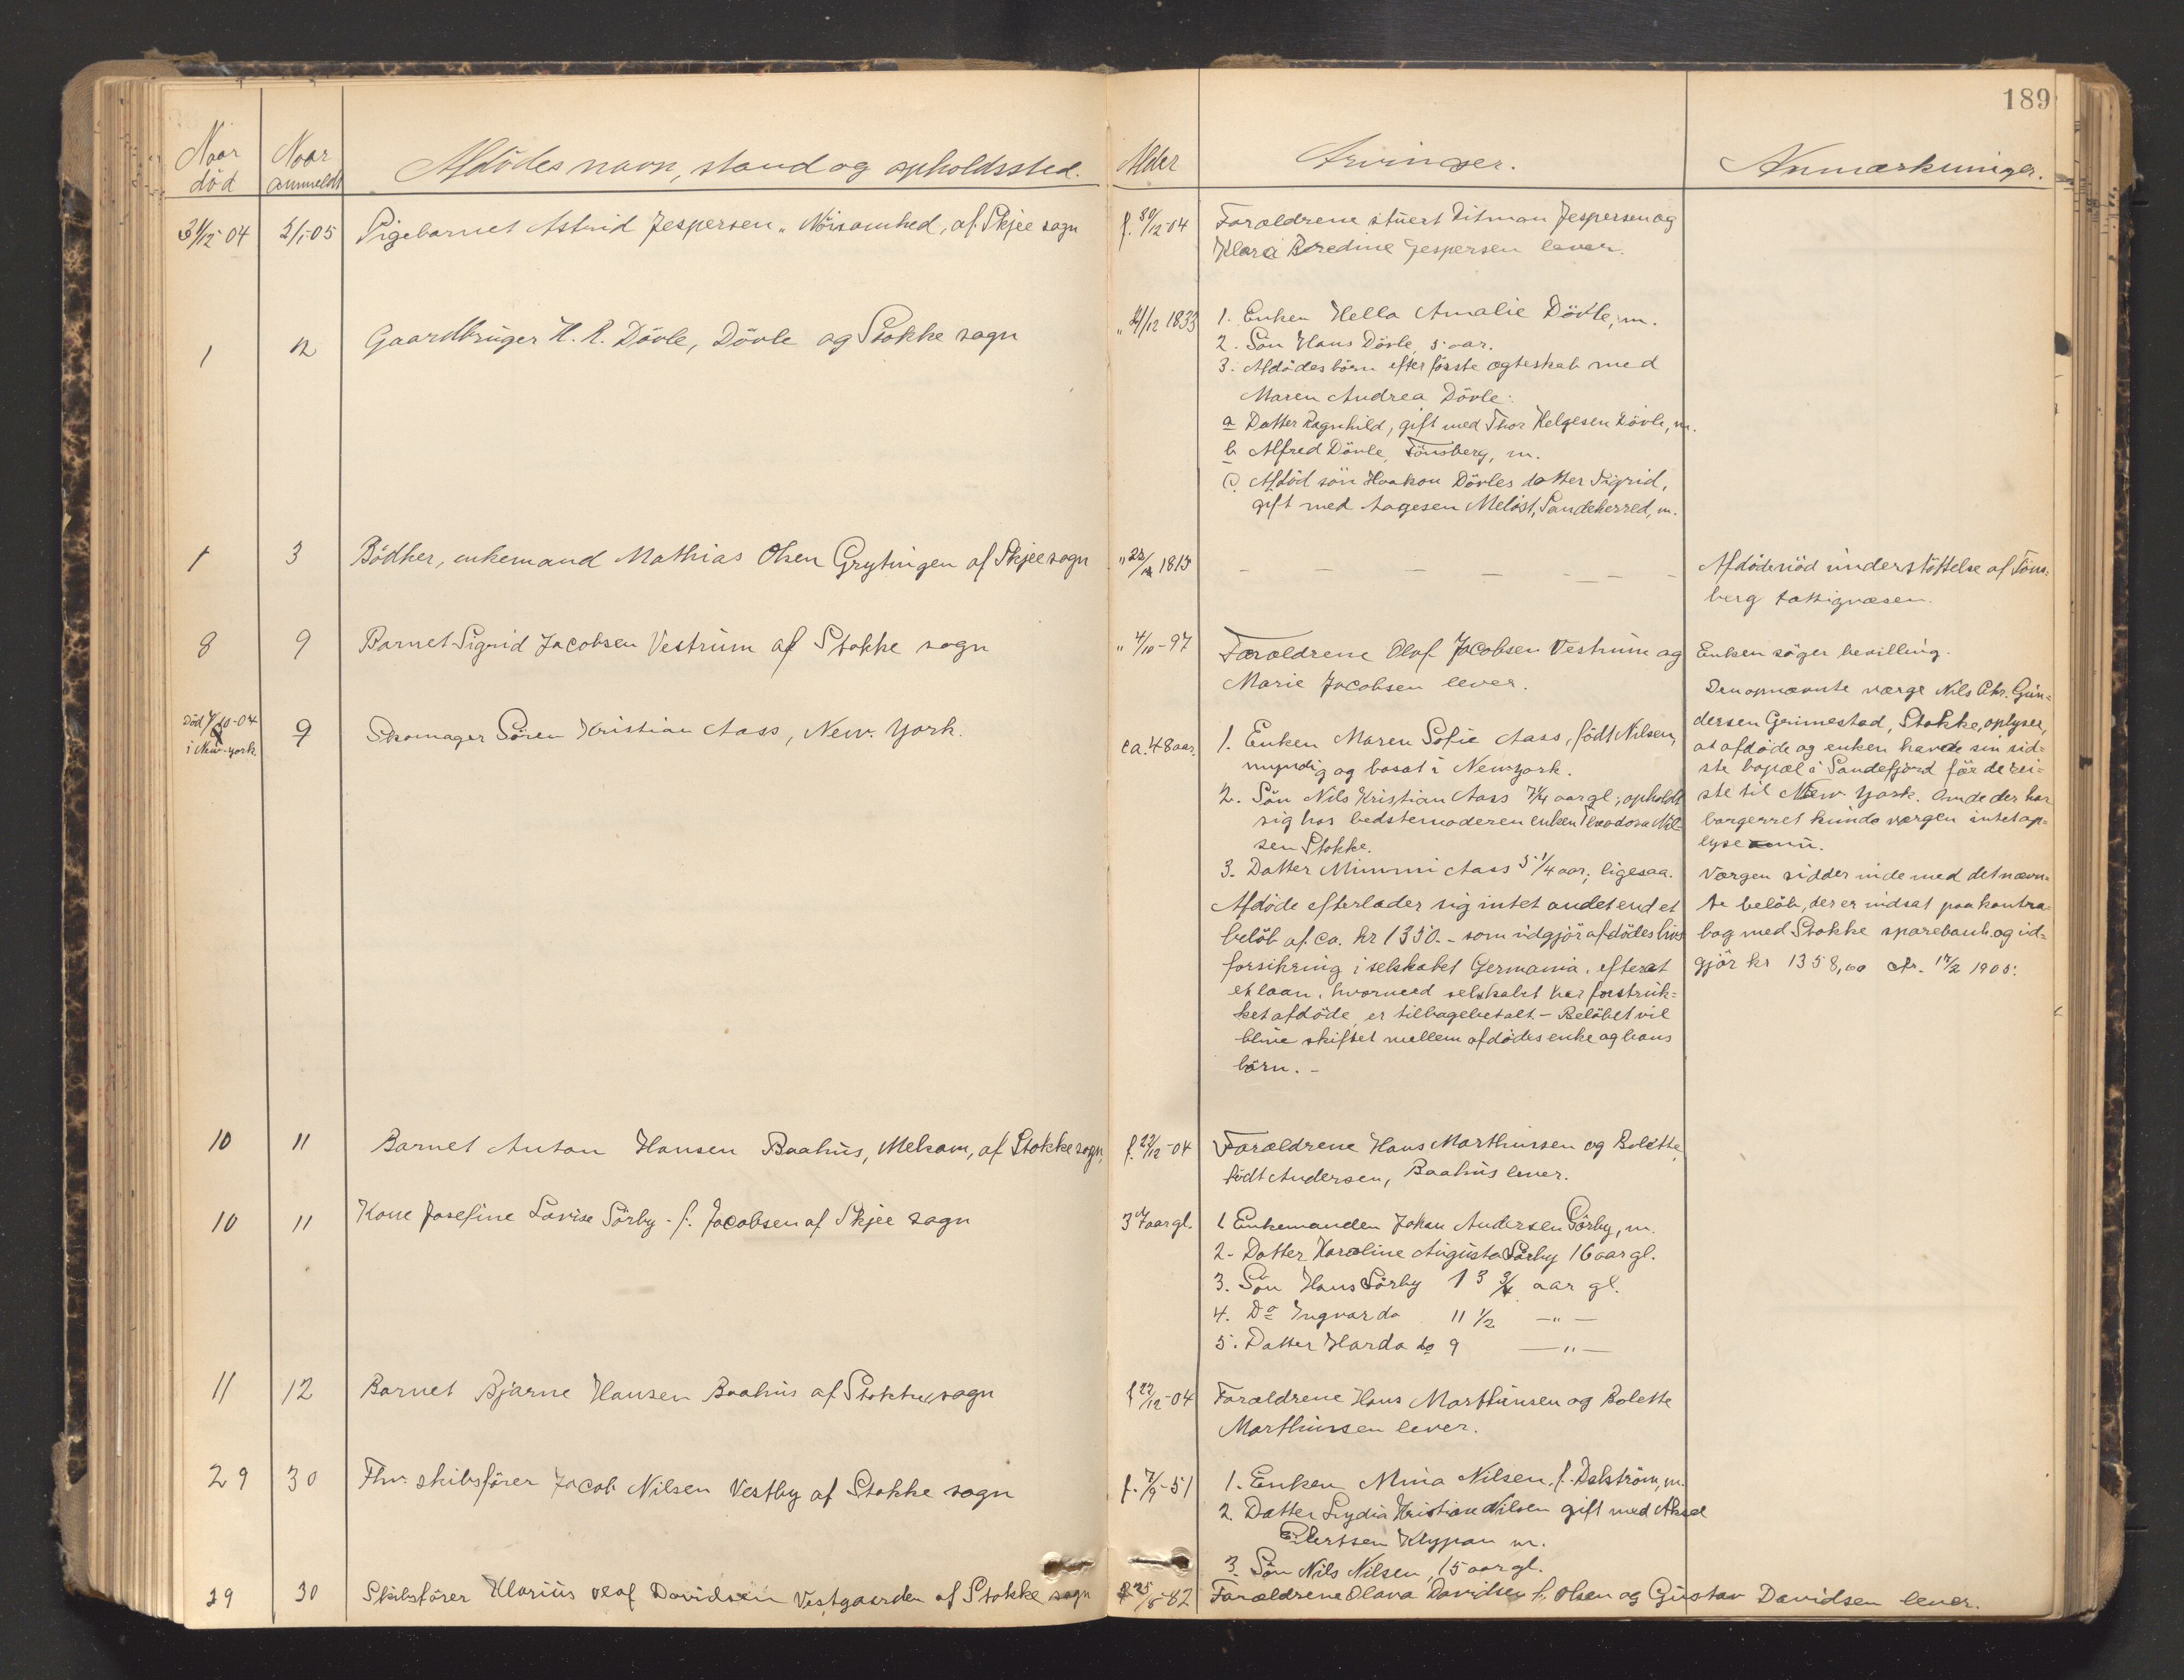 189
Naar død
Naar anmeldt
Afdödes navn, stand og opholdssted.
Alder
Arvinger.
Anmærkninger.
31/12-04 2/1-05 Pigebarnet Astrid Jespersen „Nöisomhed, af Skjee sagn f. 30/12-04 Forældrene stuert Ditman Jespersen og
Klara Beredine Jespersen lever.
1 2 Gaardbruger H. R. Dövle, Dövle og Stokke sogn „ 21/12 1833 1. Enken Hella Amalie Dövle, m.
2. Sön Hans Dövle, 5 aar.
3. Afdödes börn efter förste ægteskab med
Maren Andrea Dövle:
a Datter Ragnhild, gift med Thor Helgesen Dövle, m.
b Alfred Dövle, Tönsberg, m.
c. Afdöd sön Haakon Dövles datter Sigrid,
gift med Aagesen Melöst, Sandeherred, m.
1 3 Bödker, enkemand Mathias Olsen Grytingen af Skjee sogn „ 23/12 1815 — — — — — — —
Afdöde nöd understöttelse af Töns=
berg fattigvæsen.
8 9 Barnet Sigrid Jacobsen Vestrum af Stokke sogn „ 4/10-97 Forældrene Olaf Jacobsen Vestrum og
Marie Jacobsen lever.
Död 7/10-04
i New-york.
9 Skomager Sören Kristian Aass, New. York. ca. 48 aar. 1. Enken Maren Sofie Aass, födt Nilsen,
myndig og bosat i Newyork.
2. Sön Nils Kristian Aass 7 1/4 aar gl; opholdt
sig hos bedstemoderen enken Theodora Nil=
sen Stokke.
3. Datter Mimmi Aass 5 1/4 aar; ligesaa.
Afdöde efterlader sig intet andet end et
belöb af ca. kr 1350.- som udgjör afdödes livs
forsikring i selskabet Germania, efterat
et laan, hvormed selskabet har forstruk=
ket afdöde, er tilbagebetalt - Belöbet vil
blive skiftet mellem afdödes enke og hans
börn. -
Enken söger bevilling.
Den opnævnte værge Nils Chr. Gun=
dersen Grimestad, Stokke, oplyser,
at afdöde og enken havde sin sid=
ste bopæl i Sandefjordför de rei=
ste til New York. Om de der har
borgerret kunde værgen intet op=
lyse om.
Værgen sidder inde med det nævn=
te belöb, der er indsat paa kontra=
bog med Stokke sparebank og ud=
gjör kr 1358,00 1905.
10 11 Barnet Anton Hansen Baahus, Melsom, af Stokke sogn, f. 22/12-04 Forældrene Hans Marthinssen og Bolette,
födt Andersen, Baahus lever.
10 11 Kone Josefine Lovise Sörby - f. Jacobsen af Skjee sogn 37 aar gl. 1 Enkemanden Johan Andersen Sörby, m.
2- Datter Karoline Augusta Sörby 16 aar gl.
3. Sön Hans Sörby 13 3/4 aar gl.
4. Do Ingvar do 11 1/2 —„—
5. Datter Harda do 9 —„—
11 12 Barnet Bjarne Hansen Baahus af Stokke sogn f 22/12-04 Forældrene Hans Marthinsen og Bolette
Marthinssen lever.
29 30 Fhv. skibsförer Jacob Nilsen Vestby af Stokke sogn f. 7/9-51 1. Enken Mina Nilsen, f. Dalström, m.
2. Datter Lydia Kristiane Nilsen gift med Aksel
Eilertsen Klypan m.
3. Sön Nils Nilsen, 15 aar gl.
29 30 Skibsförer Klarius Olaf Davidsen Vestgaarden af Stokke sogn f 25/5-82 Forældrene Olava Davidsen f. Olsen og Gustav Davidsen lever.